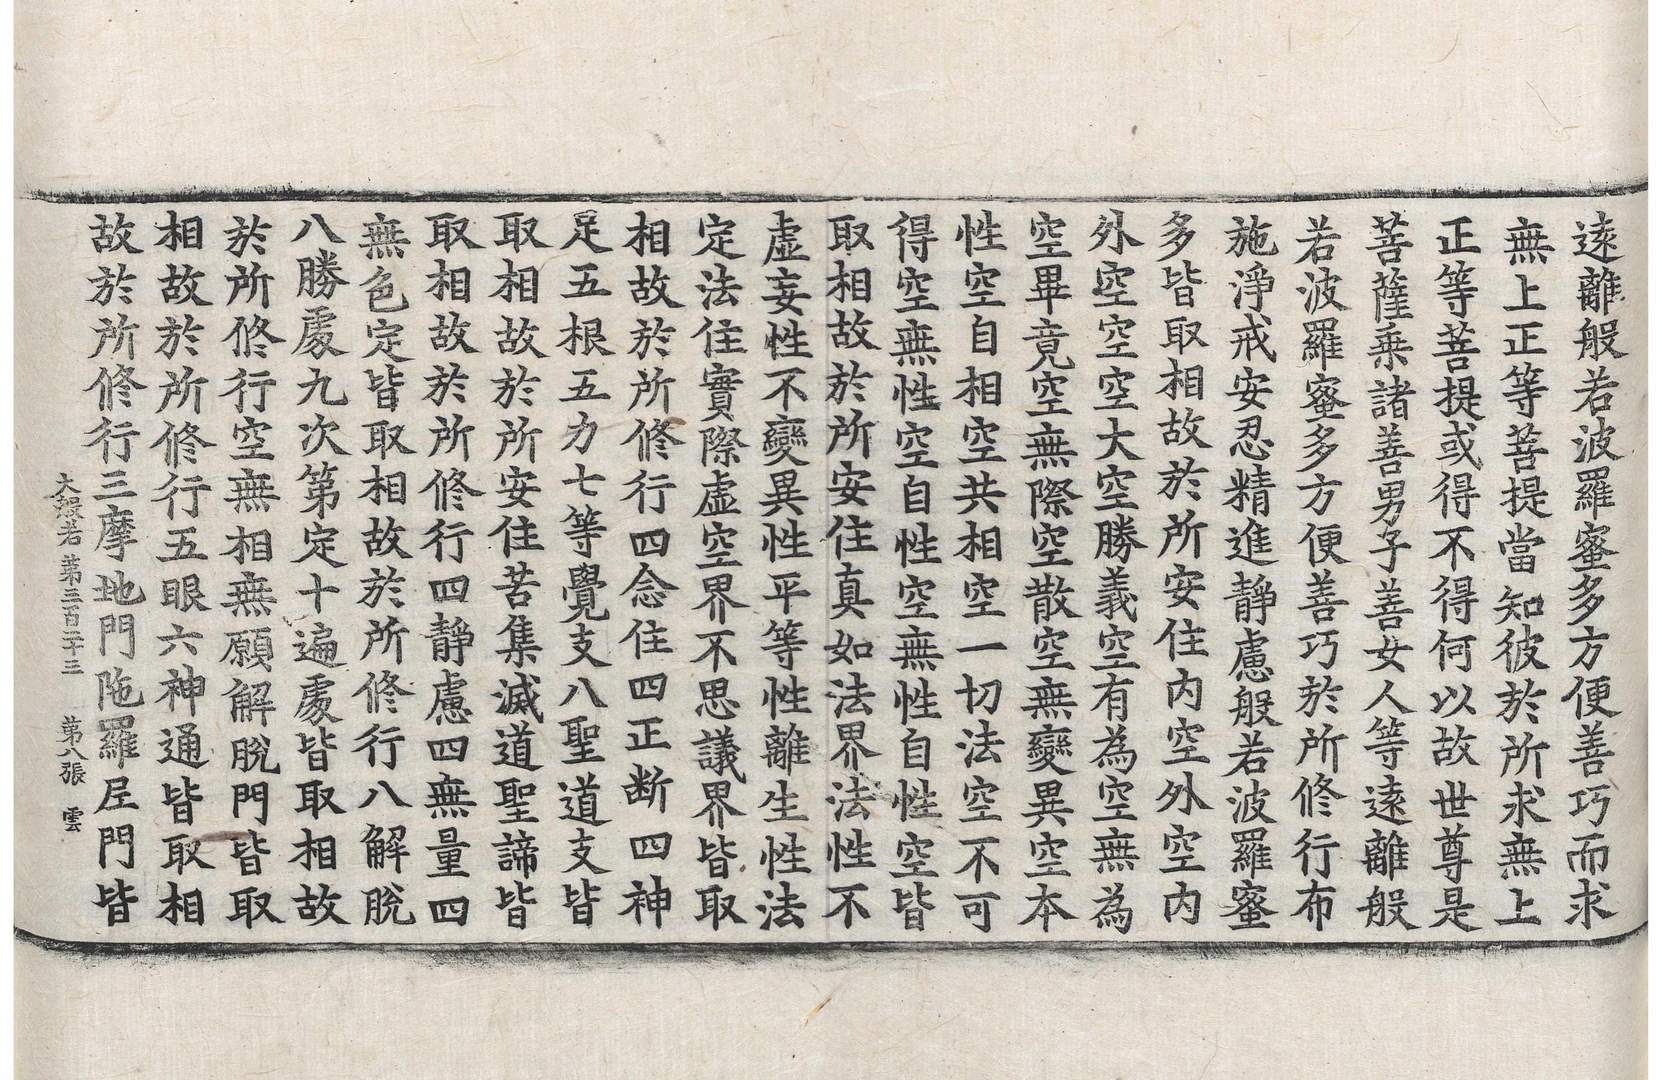 遠離般若波羅蜜多方便善巧而求
無上正等菩提當知彼於所求無上
正等菩提或得不得何以故世尊是
菩薩乘諸善男子善女人等遠離般
若波羅蜜多方便善巧於所修行布
施淨戒安忍精進靜慮般若波羅蜜
多皆取相故於所安住內空外空內
外空空空大空勝義空有為空無為
空畢竟空無際空散空無變異空本
性空自相空共相空一切法空不可
得空無性空自性空無性自性空皆
取相故於所安住真如法界法性不
虛妄性不變異性平等性離生性法
定法住實際虛空界不思議界皆取
相故於所修行四念住四正断四神
足五根五力七等覺支八聖道支皆
取相故於所安住苦集滅道聖諦皆
取相故於所修行四靜慮四無量四
無色定皆取相故於所修行八解脫
八勝處九次第定十遍處皆取相故
於所修行空無相無願解脫門皆取
相故於所修行五眼六神通皆取相
故於所修行三摩地門陁羅尼門皆
大般若第三百二十三 第八張 雲